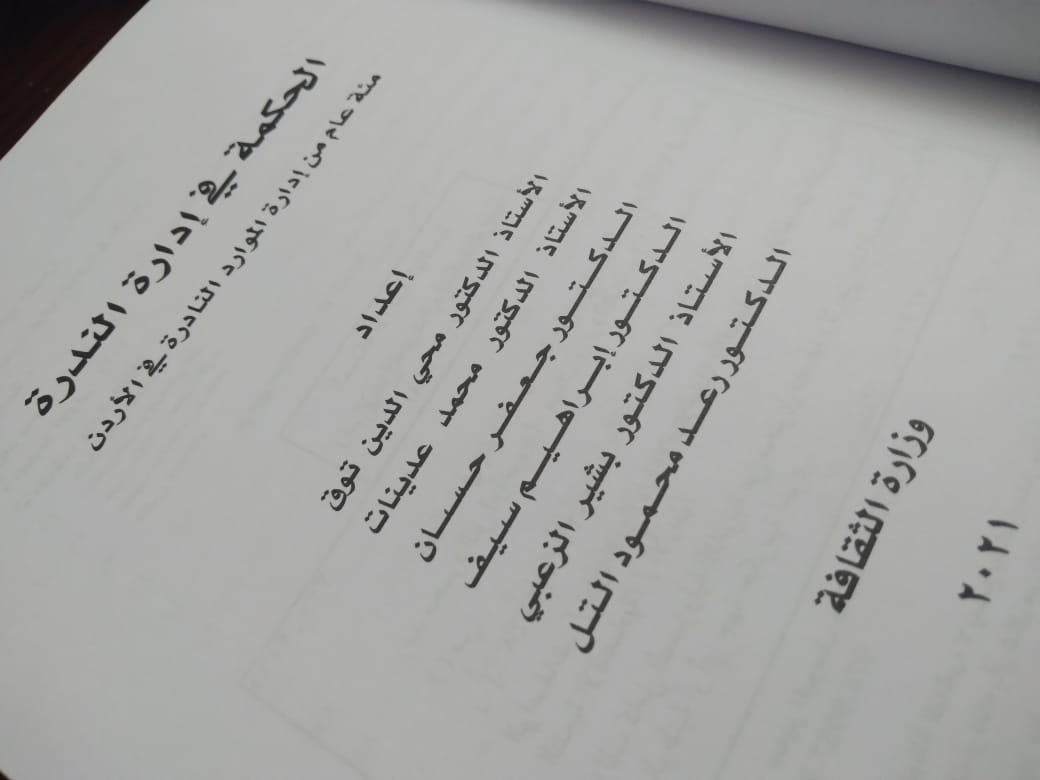 الحكمة في إدارة الندرة
مئة عام من إدارة الموارد النادرة في الأردن
إعداد
الأستاذ الدكتور محي الدين توق
الأستاذ الدكتور محمد عدينات
الدكتور جعفر حسان
الدكتور إبراهيم سيف
الأستاذ الدكتور بشير الزعبي
الدكتور رعد محمود التل
وزارة الثقافة
٢٠٢١